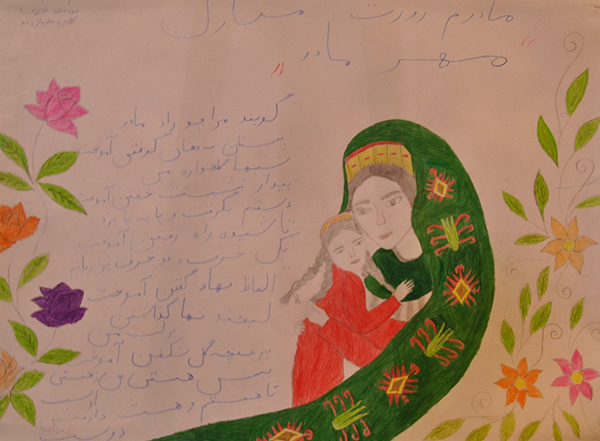 مادرم روزت مبارک
"مهر مادر"
گویند مرا چو زاد مادر
پستان به دهان گرفتن آموخت
شبها گاهواره من
بیدار نشست خفتن آموخت
دستم بگرفت و پا به پا برد
تا شیوه راه رفتن آموخت
یک حرف و دو حرف بر زبانم
الفاظ نهاد گفتن آموخت
لبخند
بر لب من
بر غنچه گل شکفتن آموخت
پس هستی من ز هستی
اوست
تا هستم و هست دارمش
دوست